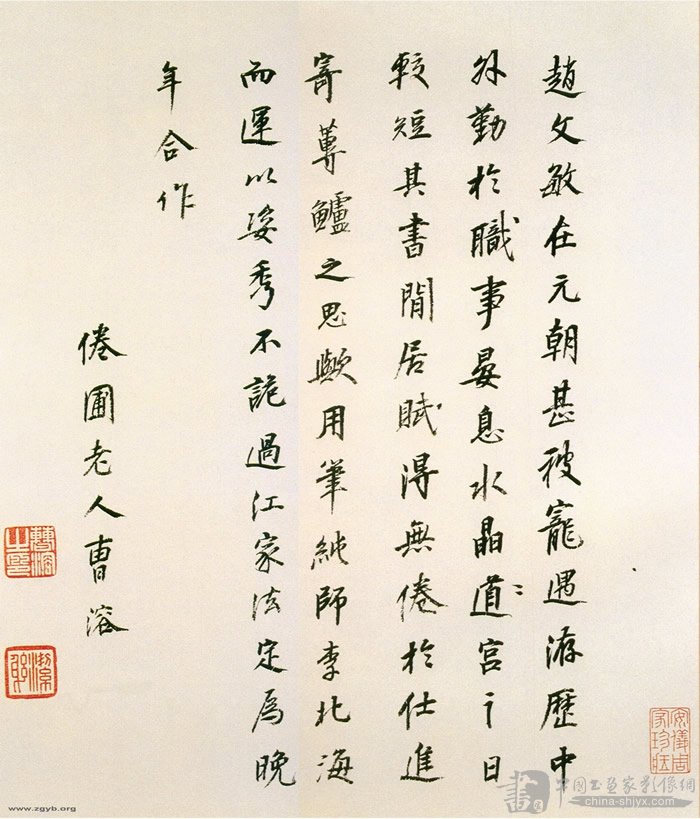 趙文敏在元朝甚被寵遇游歷中
外勤於職事晏息水晶道宮之日
較短其書閒居賦得無倦於仕進
寄蓴鱸之思歟用筆純師李北海
而運以姿秀不詭過江家法定爲晚
年合作
倦圃老人曹溶
曹溶之印
潔躬
安儀周家珍藏
www.zgyb.org
書
中国书画家影像網
china-shjyx.com